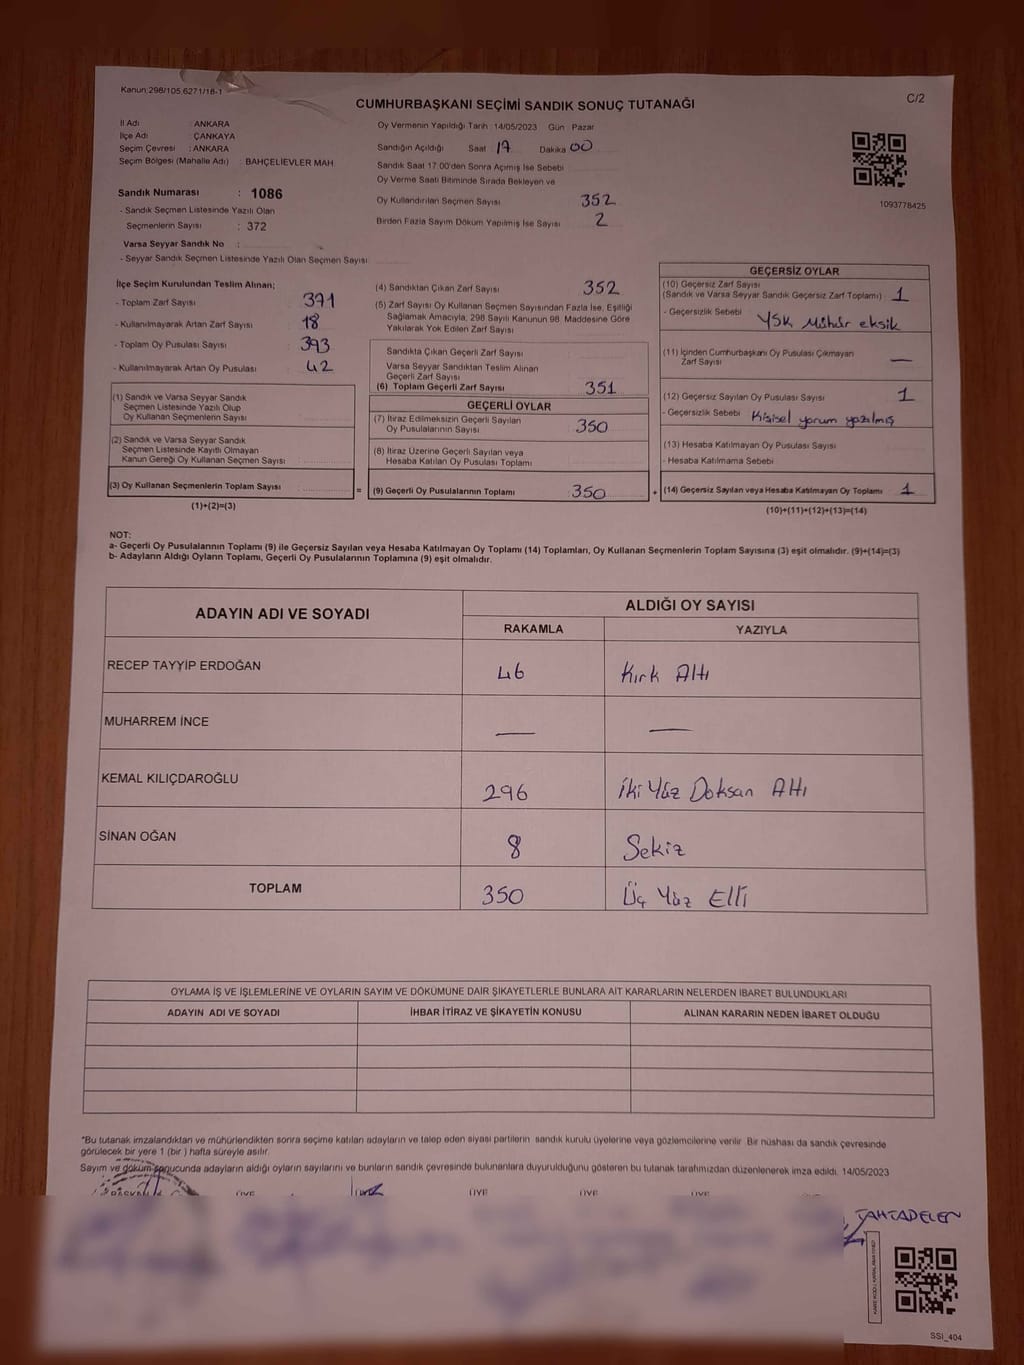 Kanun:298/105,6271/18-1
CUMHURBAŞKANI SEÇİMİ SANDIK SONUÇ TUTANAĞI
C/2
İl Adı : ANKARA
İlçe Adı : ÇANKAYA
Seçim Çevresi : ANKARA
Seçim Bölgesi (Mahalle Adı) : BAHÇELİEVLER MAH
Sandık Numarası : 1086
- Sandık Seçmen Listesinde Yazılı Olan
Seçmenlerin Sayısı : 372
Varsa Seyyar Sandık No :
- Seyyar Sandık Seçmen Listesinde Yazılı Olan Seçmen Sayısı
Oy Vermenin Yapıldığı Tarih :14/05/2023 Gün : Pazar
Sandığın Açıldığı Saat 17 Dakika 00
Sandık Saat 17:00'den Sonra Açımış İse Sebebi
Oy Verme Saati Bitiminde Sırada Bekleyen ve
Oy Kullandırılan Seçmen Sayısı 352
Birden Fazla Sayım Döküm Yapılmış İse Sayısı 2
1093778425
İlçe Seçim Kurulundan Teslim Alınan;
- Toplam Zarf Sayısı 371
- Kullanılmayarak Artan Zarf Sayısı 18
- Toplam Oy Pusulası Sayısı 393
- Kullanılmayarak Artan Oy Pusulası 42
(1) Sandık ve Varsa Seyyar Sandık
Seçmen Listesinde Yazılı Olup
Oy Kullanan Seçmenlerin Sayısı
(2) Sandık ve Varsa Seyyar Sandık
Seçmen Listesinde Kayıtlı Olmayan
Kanun Gereği Oy Kullanan Seçmen Sayısı
(3) Oy Kullanan Seçmenlerin Toplam Sayısı
(1)+(2)=(3)
=
(4) Sandıktan Çıkan Zarf Sayısı 352
(5) Zarf Sayısı Oy Kullanan Seçmen Sayısından Fazla İse, Eşitliği
Sağlamak Amacıyla, 298 Sayılı Kanunun 98. Maddesine Göre
Yakılarak Yok Edilen Zarf Sayısı
Sandıkta Çıkan Geçerli Zarf Sayısı
Varsa Seyyar Sandıktan Teslim Alınan
Geçerli Zarf Sayısı
(6) Toplam Geçerli Zarf Sayısı 351
GEÇERLİ OYLAR
(7) İtiraz Edilmeksizin Geçerli Sayılan
Oy Pusulalarının Sayısı 350
(8) İtiraz Üzerine Geçerli Sayılan veya
Hesaba Katılan Oy Pusulası Toplamı
(9) Geçerli Oy Pusulalarının Toplamı 350
+
GEÇERSİZ OYLAR
(10) Geçersiz Zarf Sayısı
(Sandık ve Varsa Seyyar Sandık Geçersiz Zarf Toplamı) 1
- Geçersizlik Sebebi YSK Mühür eksik
(11) İçinden Cumhurbaşkanı Oy Pusulası Çıkmayan
Zarf Sayısı —
(12) Geçersiz Sayılan Oy Pusulası Sayısı 1
- Geçersizlik Sebebi Kişisel yorum yazılmış
(13) Hesaba Katılmayan Oy Pusulası Sayısı
- Hesaba Katılmama Sebebi
(14) Geçersiz Sayılan veya Hesaba Katılmayan Oy Toplamı 1
(10)+(11)+(12)+(13)=(14)
NOT:
a- Geçerli Oy Pusulalarının Toplamı (9) ile Geçersiz Sayılan veya Hesaba Katılmayan Oy Toplamı (14) Toplamları, Oy Kullanan Seçmenlerin Toplam Sayısına (3) eşit olmalıdır. (9)+(14)=(3)
b- Adayların Aldığı Oyların Toplamı, Geçerli Oy Pusulalarının Toplamına (9) eşit olmalıdır.
ADAYIN ADI VE SOYADI
ALDIĞI OY SAYISI
RAKAMLA YAZIYLA
RECEP TAYYİP ERDOĞAN 46 Kırk Altı
MUHARREM İNCE — —
KEMAL KILIÇDAROĞLU 296 İki Yüz Doksan Altı
SİNAN OĞAN 8 Sekiz
TOPLAM 350 Üç Yüz Elli
OYLAMA İŞ VE İŞLEMLERİNE VE OYLARIN SAYIM VE DÖKÜMÜNE DAİR ŞİKAYETLERLE BUNLARA AİT KARARLARIN NELERDEN İBARET BULUNDUKLARI
ADAYIN ADI VE SOYADI İHBAR İTİRAZ VE ŞİKAYETİN KONUSU ALINAN KARARIN NEDEN İBARET OLDUĞU
*Bu tutanak imzalandıktan ve mühürlendikten sonra seçime katılan adayların ve talep eden siyasi partilerin sandık kurulu üyelerine veya gözlemcilerine verilir. Bir nüshası da sandık çevresinde
görülecek bir yere 1 (bir ) hafta süreyle asılır.
Sayım ve döküm sonucunda adayların aldığı oyların sayılarını ve bunların sandık çevresinde bulunanlara duyurulduğunu gösteren bu tutanak tarafımızdan düzenlenerek imza edildi. 14/05/2023
BAŞKAN ÜYE ÜYE ÜYE ÜYE
TAHTADELEN
SSİ_404